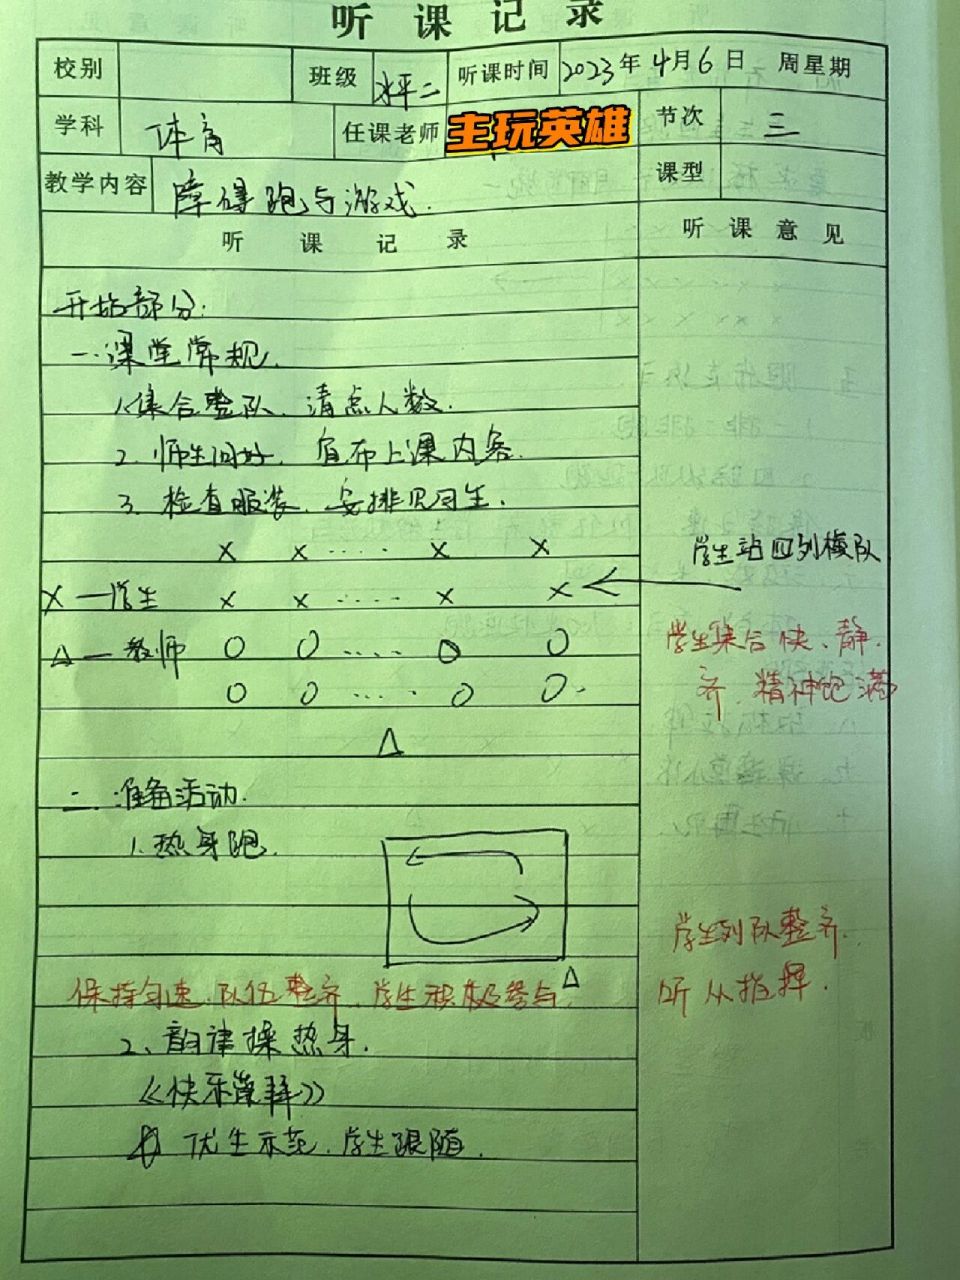 听课记录
校别 班级 水平二 听课时间 2023年4月6日 周星期
学科 体育 任课老师 主玩英雄 节次 三
教学内容 障碍跑与游戏. 课型
听课记录 听课意见
开始部分:
一.课堂常规.
1.集合整队、清点人数.
2.师生问好,宣布上课内容.
3.检查服装、安排见习生.
X X .... X X
学生站四列横队
X—学生 X X .... X X
△—教师 O O .... O O
学生集合快、静.
齐,精神饱满
O O .... O O.
△
二.准备活动.
1.热身跑.
学生列队整齐.
听从指挥.
△
保持匀速.队伍整齐.学生积极参与.
2、韵律操热身.
优生示范.学生跟随.